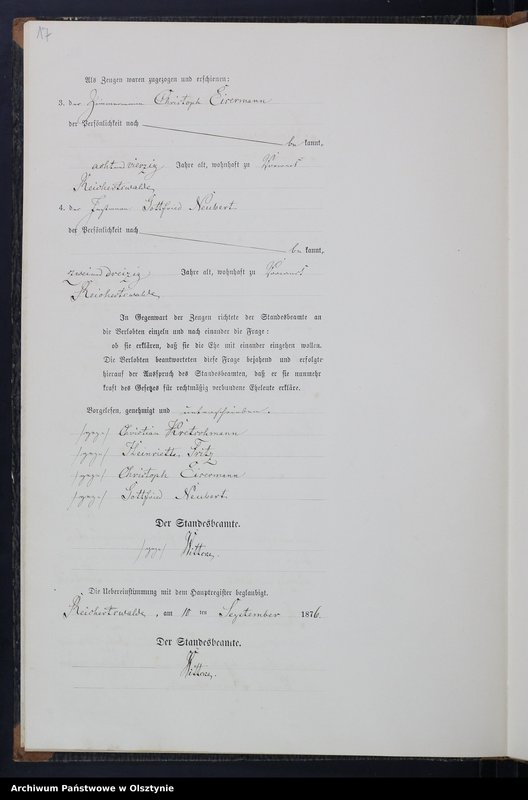 17
Als Zeugen waren zugezogen und erschienen:
3. der Zimmermann Christoph Eisermann
der Persönlichkeit nach
be kannt,
acht und vierzig Jahre alt, wohnhaft zu
Reichertswalde
4. der Instmann Gottfried Neubert
der Persönlichkeit nach
be kannt,
zwei und dreizig Jahre alt, wohnhaft zu
Reichertswalde
In Gegenwart der Zeugen richtete der Standesbeamte an
die Verlobten einzeln und nach einander die Frage:
ob sie erklären, daß sie die Ehe mit einander eingehen wollen.
Die Verlobten beantworteten diese Frage bejahend und erfolgte
hierauf der Ausspruch des Standesbeamten, daß er sie nunmehr
kraft des Gesetzes für rechtmäßig verbundene Eheleute erkläre.
Vorgelesen, genehmigt und unterschrieben.
/gez/ Christian Kretschmann
/gez/ Heinriette Fritz
/gez/ Christoph Eisermann
/gez/ Gottfried Neubert
Der Standesbeamte.
/gez/
Die Uebereinstimmung mit dem Hauptregister beglaubigt.
Reichertswalde, am 10 ten September 1876.
Der Standesbeamte.
Archiwum Państwowe w Olsztynie